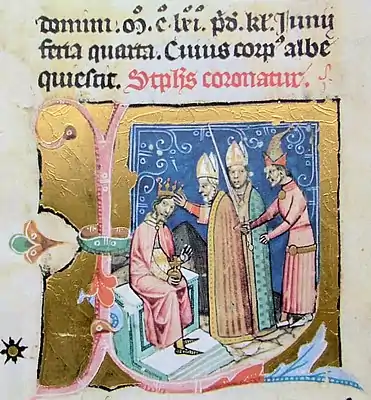 domini. M̊. C̊. lxi. pd̊. kl̄. Junij
feria quarta. Cuius corp9 albe
quiescit. Stephs coronatur.